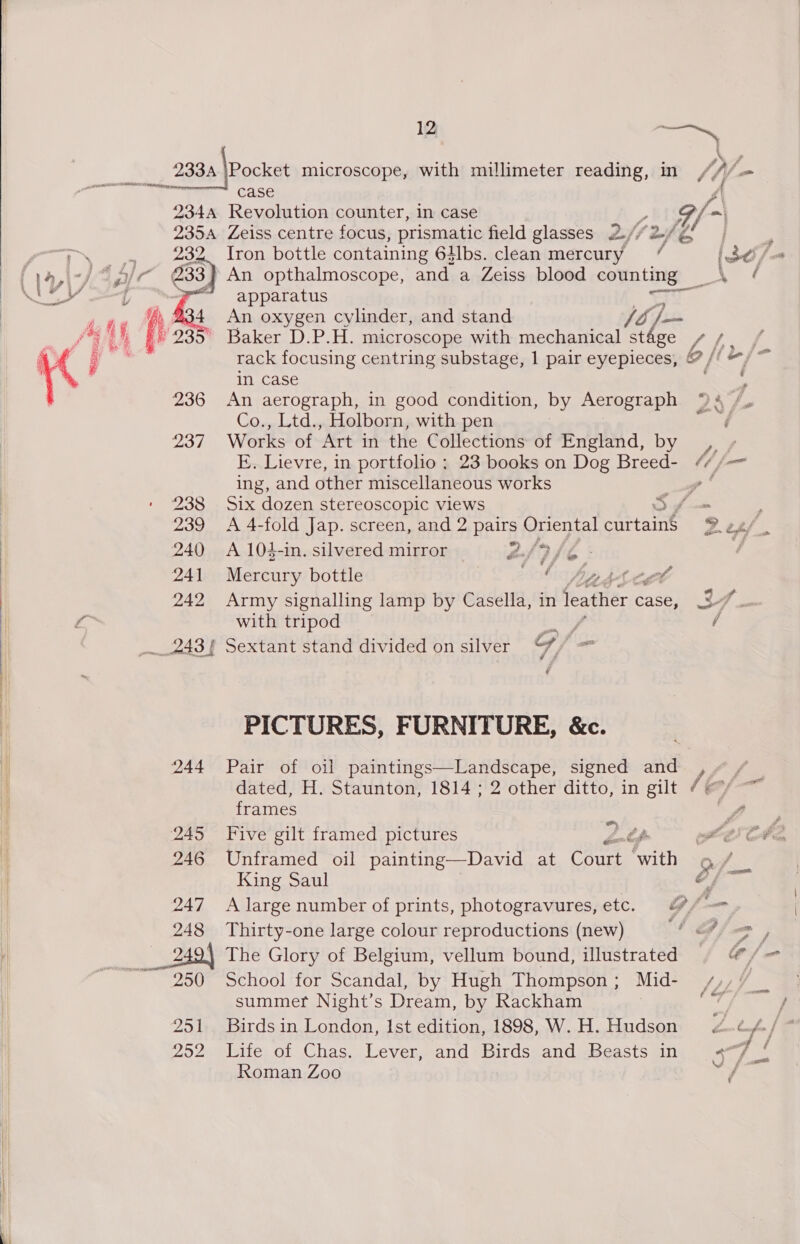 12
233A Pocket microscope, with millimeter reading, in
case
234A Revolution counter, in case
235A Zeiss centre focus, prismatic field glasses
232 Iron bottle containing 6½lbs. clean mercury
233 An opthalmoscope, and a Zeiss blood counting
apparatus
234 An oxygen cylinder, and stand
235 Baker D.P.H. microscope with mechanical stage
rack focusing centring substage, 1 pair eyepieces,
in case
236 An aerograph, in good condition, by Aerograph
Co., Ltd., Holborn, with pen
237 Works of Art in the Collections of England, by
E. Lievre, in portfolio ; 23 books on Dog Breed-
ing, and other miscellaneous works
238 Six dozen stereoscopic views
239 A 4-fold Jap. screen, and 2 pairs Oriental curtains
240 A 10½-in. silvered mirror
241 Mercury bottle
242 Army signalling lamp by Casella, in leather case,
with tripod
243 Sextant stand divided on silver
PICTURES, FURNITURE, &c.
244 Pair of oil paintings—Landscape, signed and
dated, H. Staunton, 1814 ; 2 other ditto, in gilt
frames
245 Five gilt framed pictures
246 Unframed oil painting—David at Court with
King Saul
247 A large number of prints, photogravures, etc.
248 Thirty-one large colour reproductions (new)
249 The Glory of Belgium, vellum bound, illustrated
250 School for Scandal, by Hugh Thompson ; Mid-
summer Night's Dream, by Rackham
251 Birds in London, 1st edition, 1898, W. H. Hudson
252 Life of Chas. Lever, and Birds and Beasts in
Roman Zoo